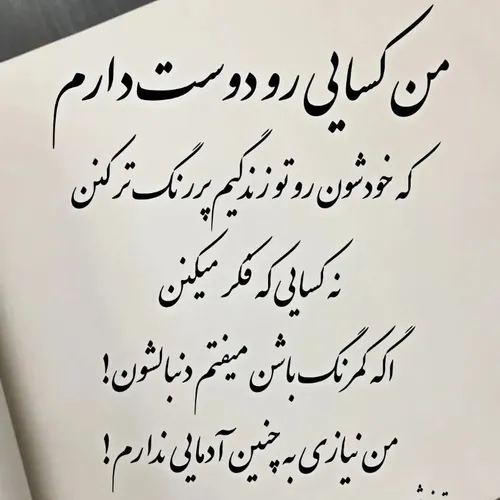 من کسایی رو دوست دارم
که خودشون رو تو زندگیم پررنگ تر کنن
نه کسایی که فکر میکنن
اگه کمرنگ باشن میفتم دنبالشون!
من نیازی به چنین آدمایی ندارم!